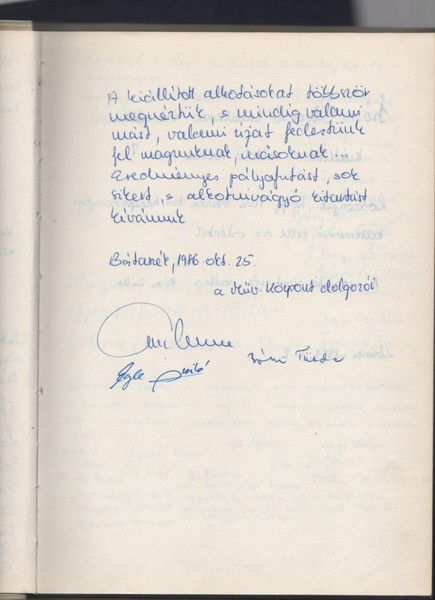 A kiállított alkotásokat többször
megnéztük, s mindig valami
mást, valami újat fedeztünk
fel magunknak, másoknak...
Eredményes pályafutást, sok
sikert, s alkotnivágyó kitartást
kívánunk
1986. okt. 25.
a Műv. Központ dolgozói